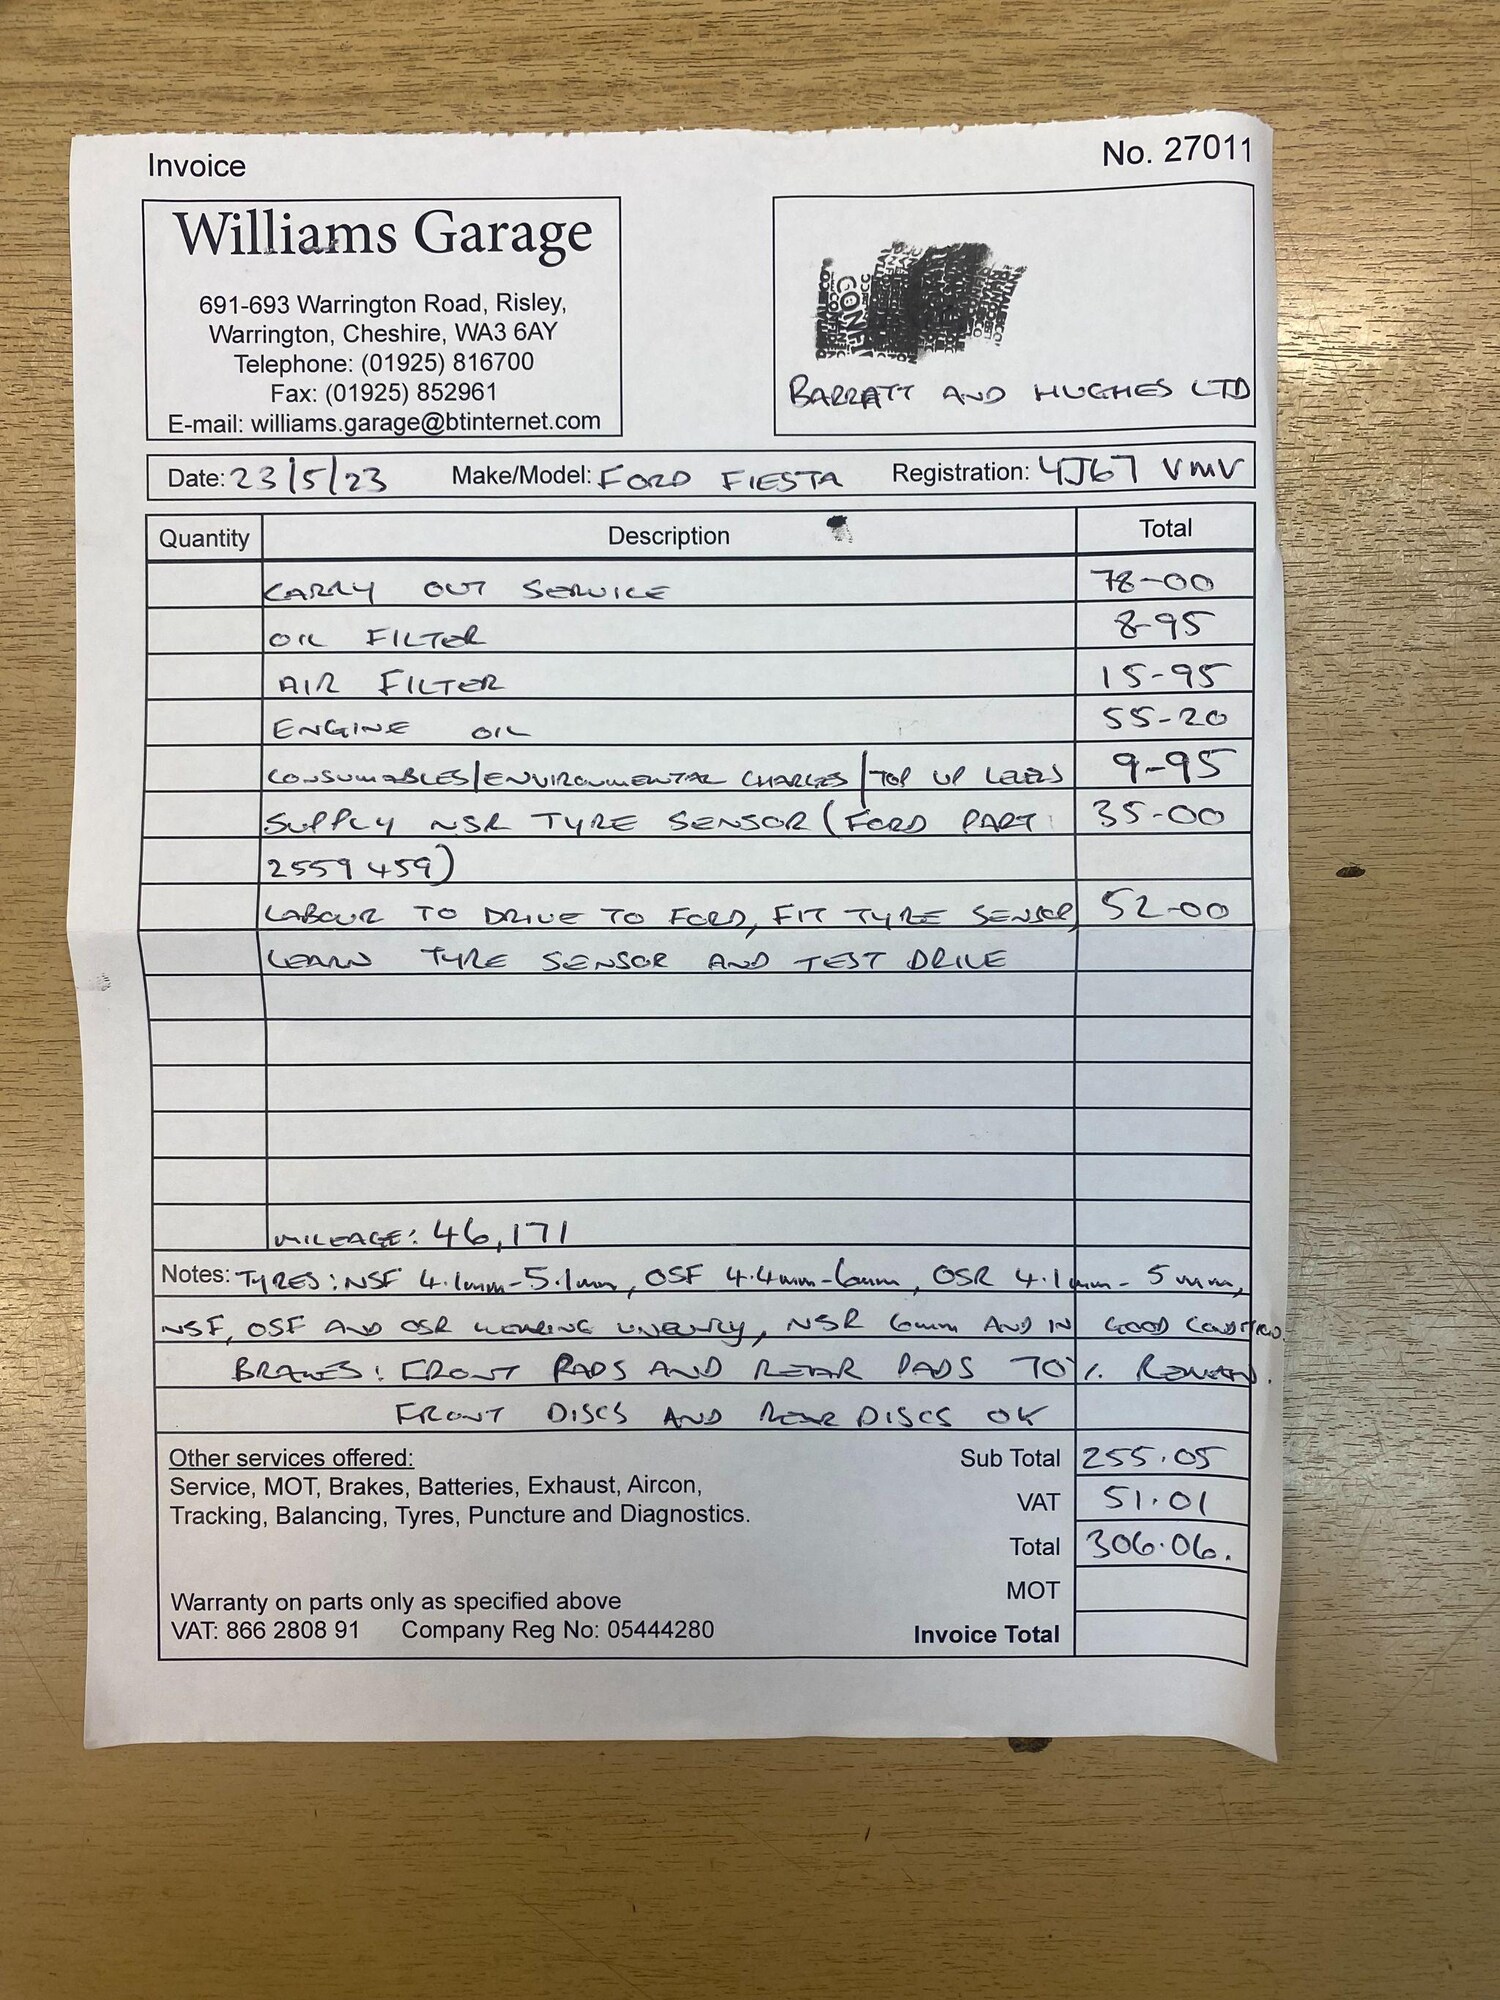 Invoice
No. 27011
Williams Garage
691-693 Warrington Road, Risley,
Warrington, Cheshire, WA3 6AY
Telephone: (01925) 816700
Fax: (01925) 852961
E-mail: williams.garage@btinternet.com
BARRATT AND HUGHES LTD
Date: 23/5/23 Make/Model: FORD FIESTA Registration: YJ67 VMV
Quantity Description Total
CARRY OUT SERVICE 78-00
OIL FILTER 8-95
AIR FILTER 15-95
ENGINE OIL 55-20
CONSUMABLES/ENVIRONMENTAL CHARGES/TOP UP LEVELS 9-95
SUPPLY NSR TYRE SENSOR (FORD PART 35-00
2559459)
LABOUR TO DRIVE TO FORD, FIT TYRE SENSOR, 52-00
LEARN TYRE SENSOR AND TEST DRIVE
MILEAGE: 46,171
Notes: TYRES: NSF 4.1mm-5.1mm, OSF 4.4mm-6mm, OSR 4.1mm-5mm,
NSF, OSF AND OSR WEARING UNEVENLY, NSR 6mm AND IN GOOD CONDITION.
BRAKES: FRONT PADS AND REAR PADS 70% REMAIN.
FRONT DISCS AND REAR DISCS OK
Other services offered:
Service, MOT, Brakes, Batteries, Exhaust, Aircon,
Tracking, Balancing, Tyres, Puncture and Diagnostics.
Sub Total 255.05
VAT 51.01
Total 306.06.
MOT
Warranty on parts only as specified above
VAT: 866 2808 91 Company Reg No: 05444280
Invoice Total